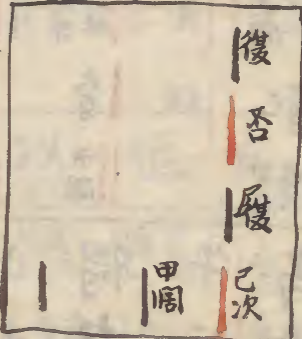 復
否
履
己次
甲濶